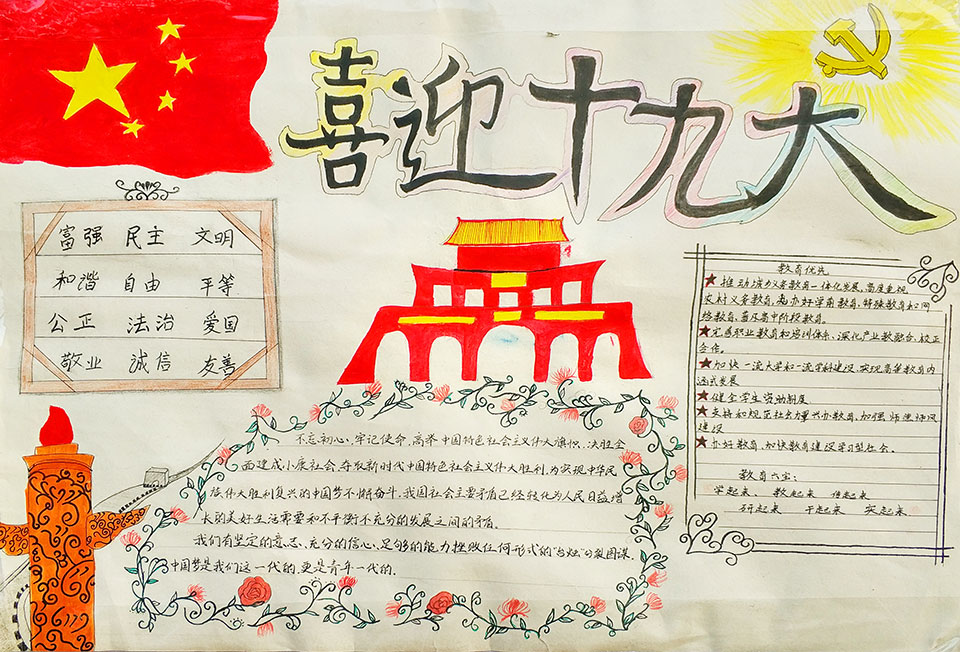 喜迎十九大
富强 民主 文明
和谐 自由 平等
公正 法治 爱国
敬业 诚信 友善
教育优先
推动城乡义务教育一体化发展,高度重视
农村义务教育,办好学前教育,特殊教育和网
络教育,普及高中阶段教育。
完善职业教育和培训体系,深化产业教融合,校正
合作。
加快一流大学和一流学科建设,实现高等教育内
涵式发展
健全学生资助制度
支持和规范社会力量兴办教育,加强师德师风
建设
办好教育,加快教育建设学习型社会。
教育六宝:
学起来、教起来 信起来
研起来 干起来 实起来
不忘初心,牢记使命,高举中国特色社会主义伟大旗帜,决胜全
面建成小康社会,夺取新时代中国特色社会主义伟大胜利,为实现中华民
族伟大胜利复兴的中国梦不懈奋斗。我国社会主要矛盾已经转化为人民日益增
长的美好生活需要和不平衡不充分的发展之间的矛盾。
我们有坚定的意志、充分的信心、足够的能力挫败任何形式的"台独"分裂图谋。
中国梦是我们这一代的,更是青年一代的.